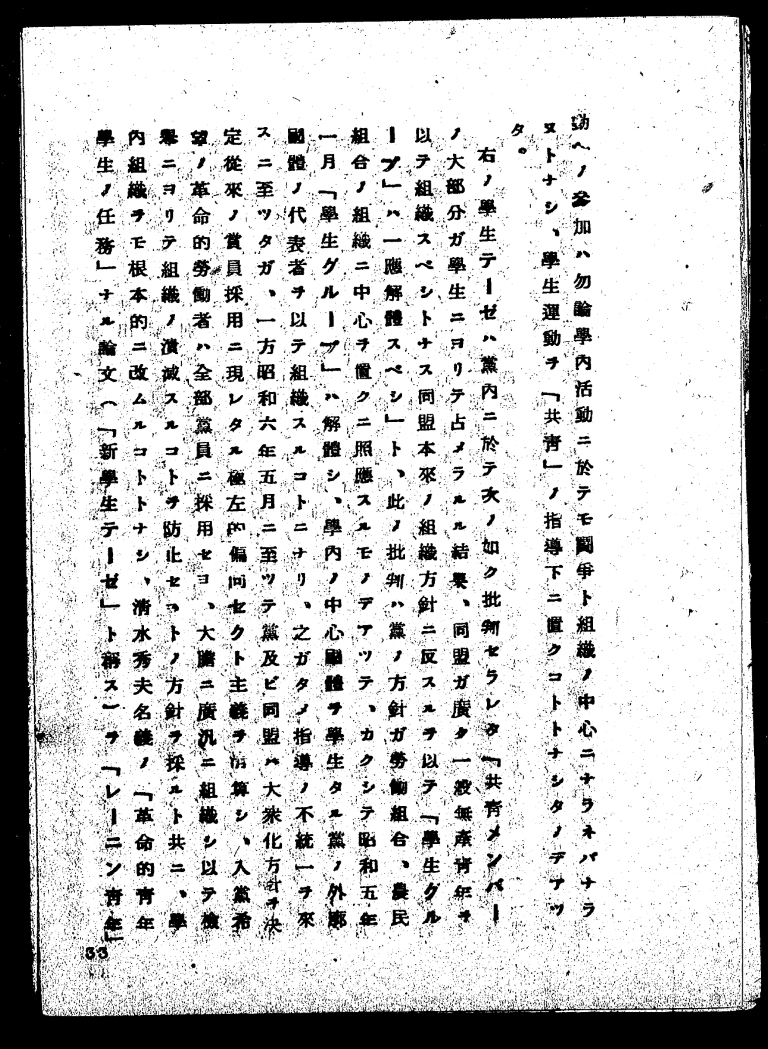 動ヘノ參加ハ勿論學內活動ニ於テモ鬪爭ト組織ノ中心ニナラネバナラ
ヌトナシ、學生運動ヲ「共靑」ノ指導下ニ置クコトトナシタノデアツ
タ。
右ノ學生テーゼハ黨內ニ於テ次ノ如ク批判セラレタ「共靑メンバー
ノ大部分ガ學生ニヨリテ占メラルル結果、同盟ガ廣ク一般無產靑年ヲ
以テ組織スベシトナス同盟本來ノ組織方針ニ反スルヲ以テ「學生グル
ープ」ハ一應解體スベシ」ト、此ノ批判ハ黨ノ方針ガ勞働組合、農民
組合ノ組織ニ中心ヲ置クニ照應スルモノデアツテ、カクシテ昭和五年
一月「學生グループ」ハ解體シ、學內ノ中心團體ヲ學生タル黨ノ外廓
團體ノ代表者ヲ以テ組織スルコトニナリ、之ガタメ指導ノ不統一ヲ來
スニ至ツタガ、一方昭和六年五月ニ至ツテ黨及ビ同盟ハ大衆化方針ヲ決
定從來ノ黨員採用ニ現レタル極左的偏向セクト主義ヲ淸算シ、入黨希
望ノ革命的勞働者ハ全部黨員ニ採用セヨ、大膽ニ廣汎ニ組織シ以テ檢
擧ニヨリテ組織ノ潰滅スルコトヲ防止セントノ方針ヲ採ルト共ニ、學
內組織ヲモ根本的ニ改ムルコトトナシ、淸水秀夫名義ノ「革命的靑年
學生ノ任務」ナル論文(「新學生テーゼ」ト稱ス)ヲ「レーニン靑年」
33